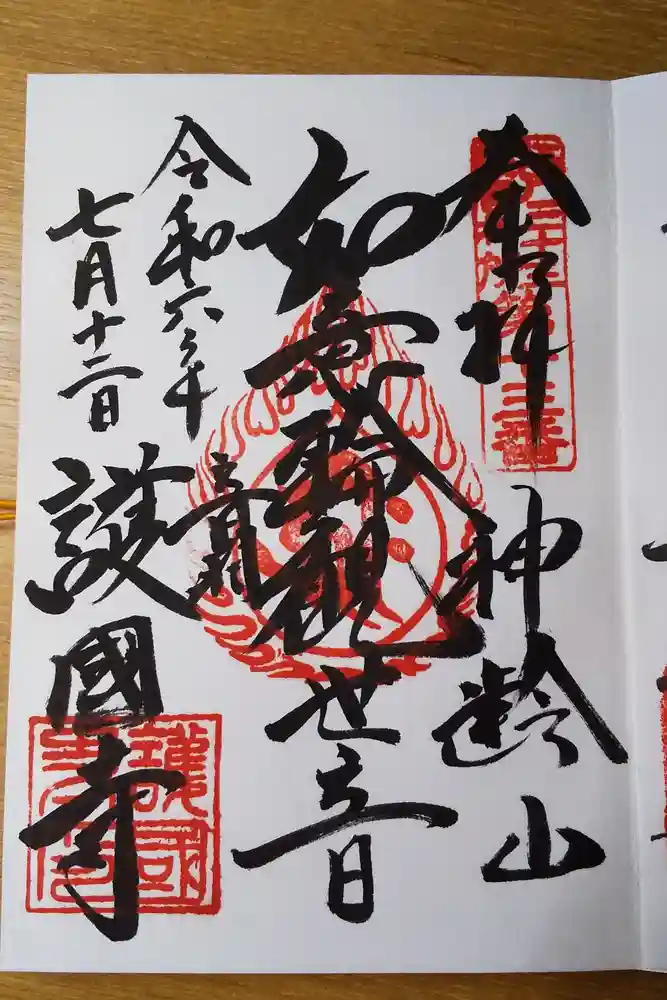 奉拝
神齢山
如意輪観世音
音羽
護國寺
令和六年
七月十二日